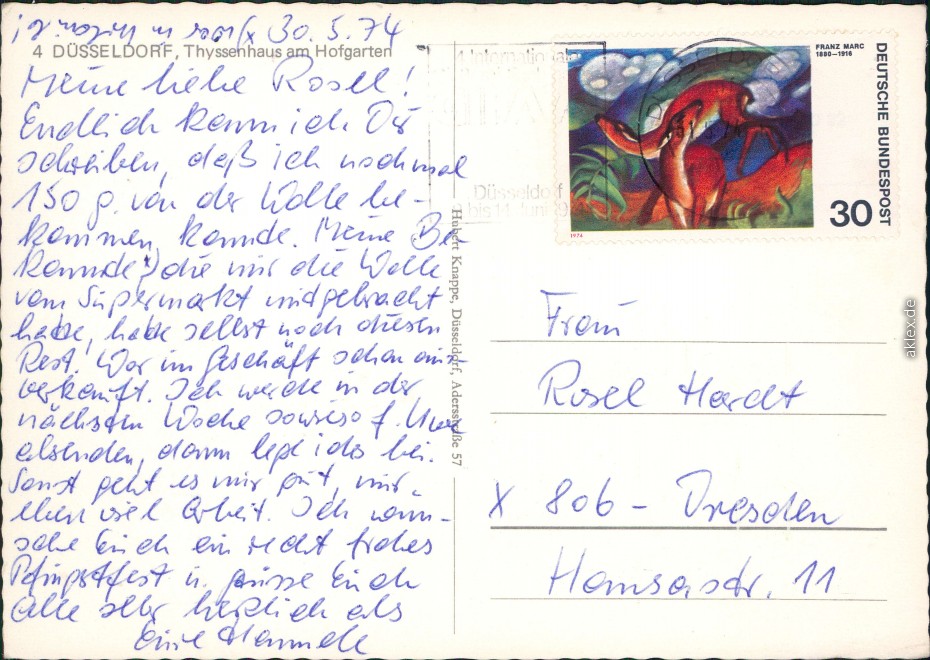 30.5.74
4 DÜSSELDORF, Thyssenhaus am Hofgarten
Meine liebe Rosel!
Endlich kann ich Dir
schreiben, daß ich nochmal
150 g. von der Wolle be-
kommen, konnte. Meine Be-
kannte, die mir die Wolle
vom Supermarkt mitgebracht
hatte, hatte selbst noch diesen
Rest. War im Geschäft schon aus-
verkauft. Ich werde in der
nächsten Woche sowieso f.
absenden, dann lege ich es bei.
Sonst geht es mir gut, nur
eben viel Arbeit. Ich wün-
sche Euch ein recht frohes
Pfingstfest u. grüsse Euch
alle sehr herzlich als
Eure Hannele
Hubert Knappe, Düsseldorf, Adersstraße 57
Düsseldorf
FRANZ MARC
1880–1916
DEUTSCHE BUNDESPOST
30
1974
Frau
Rosel Hardt
X 806 - Dresden
Hansastr. 11
aklex.de